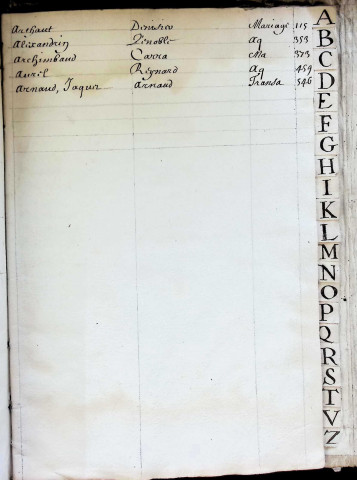 Arthaut Mariage 115
Alixandrin Aq 353
Archimbaud Carra 373
Aurel Reynard Aq 459
Arnaud, Jaques Arnaud Transa 546
A
B
C
D
E
F
G
H
I
K
L
M
N
O
P
Q
R
S
T
V
Z